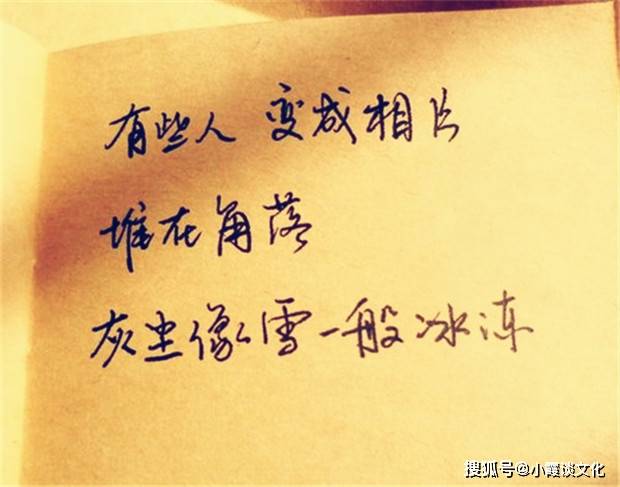 有些人 变成相片
堆在角落
灰尘像雪一般冰冻
搜狐号@小霞谈文化